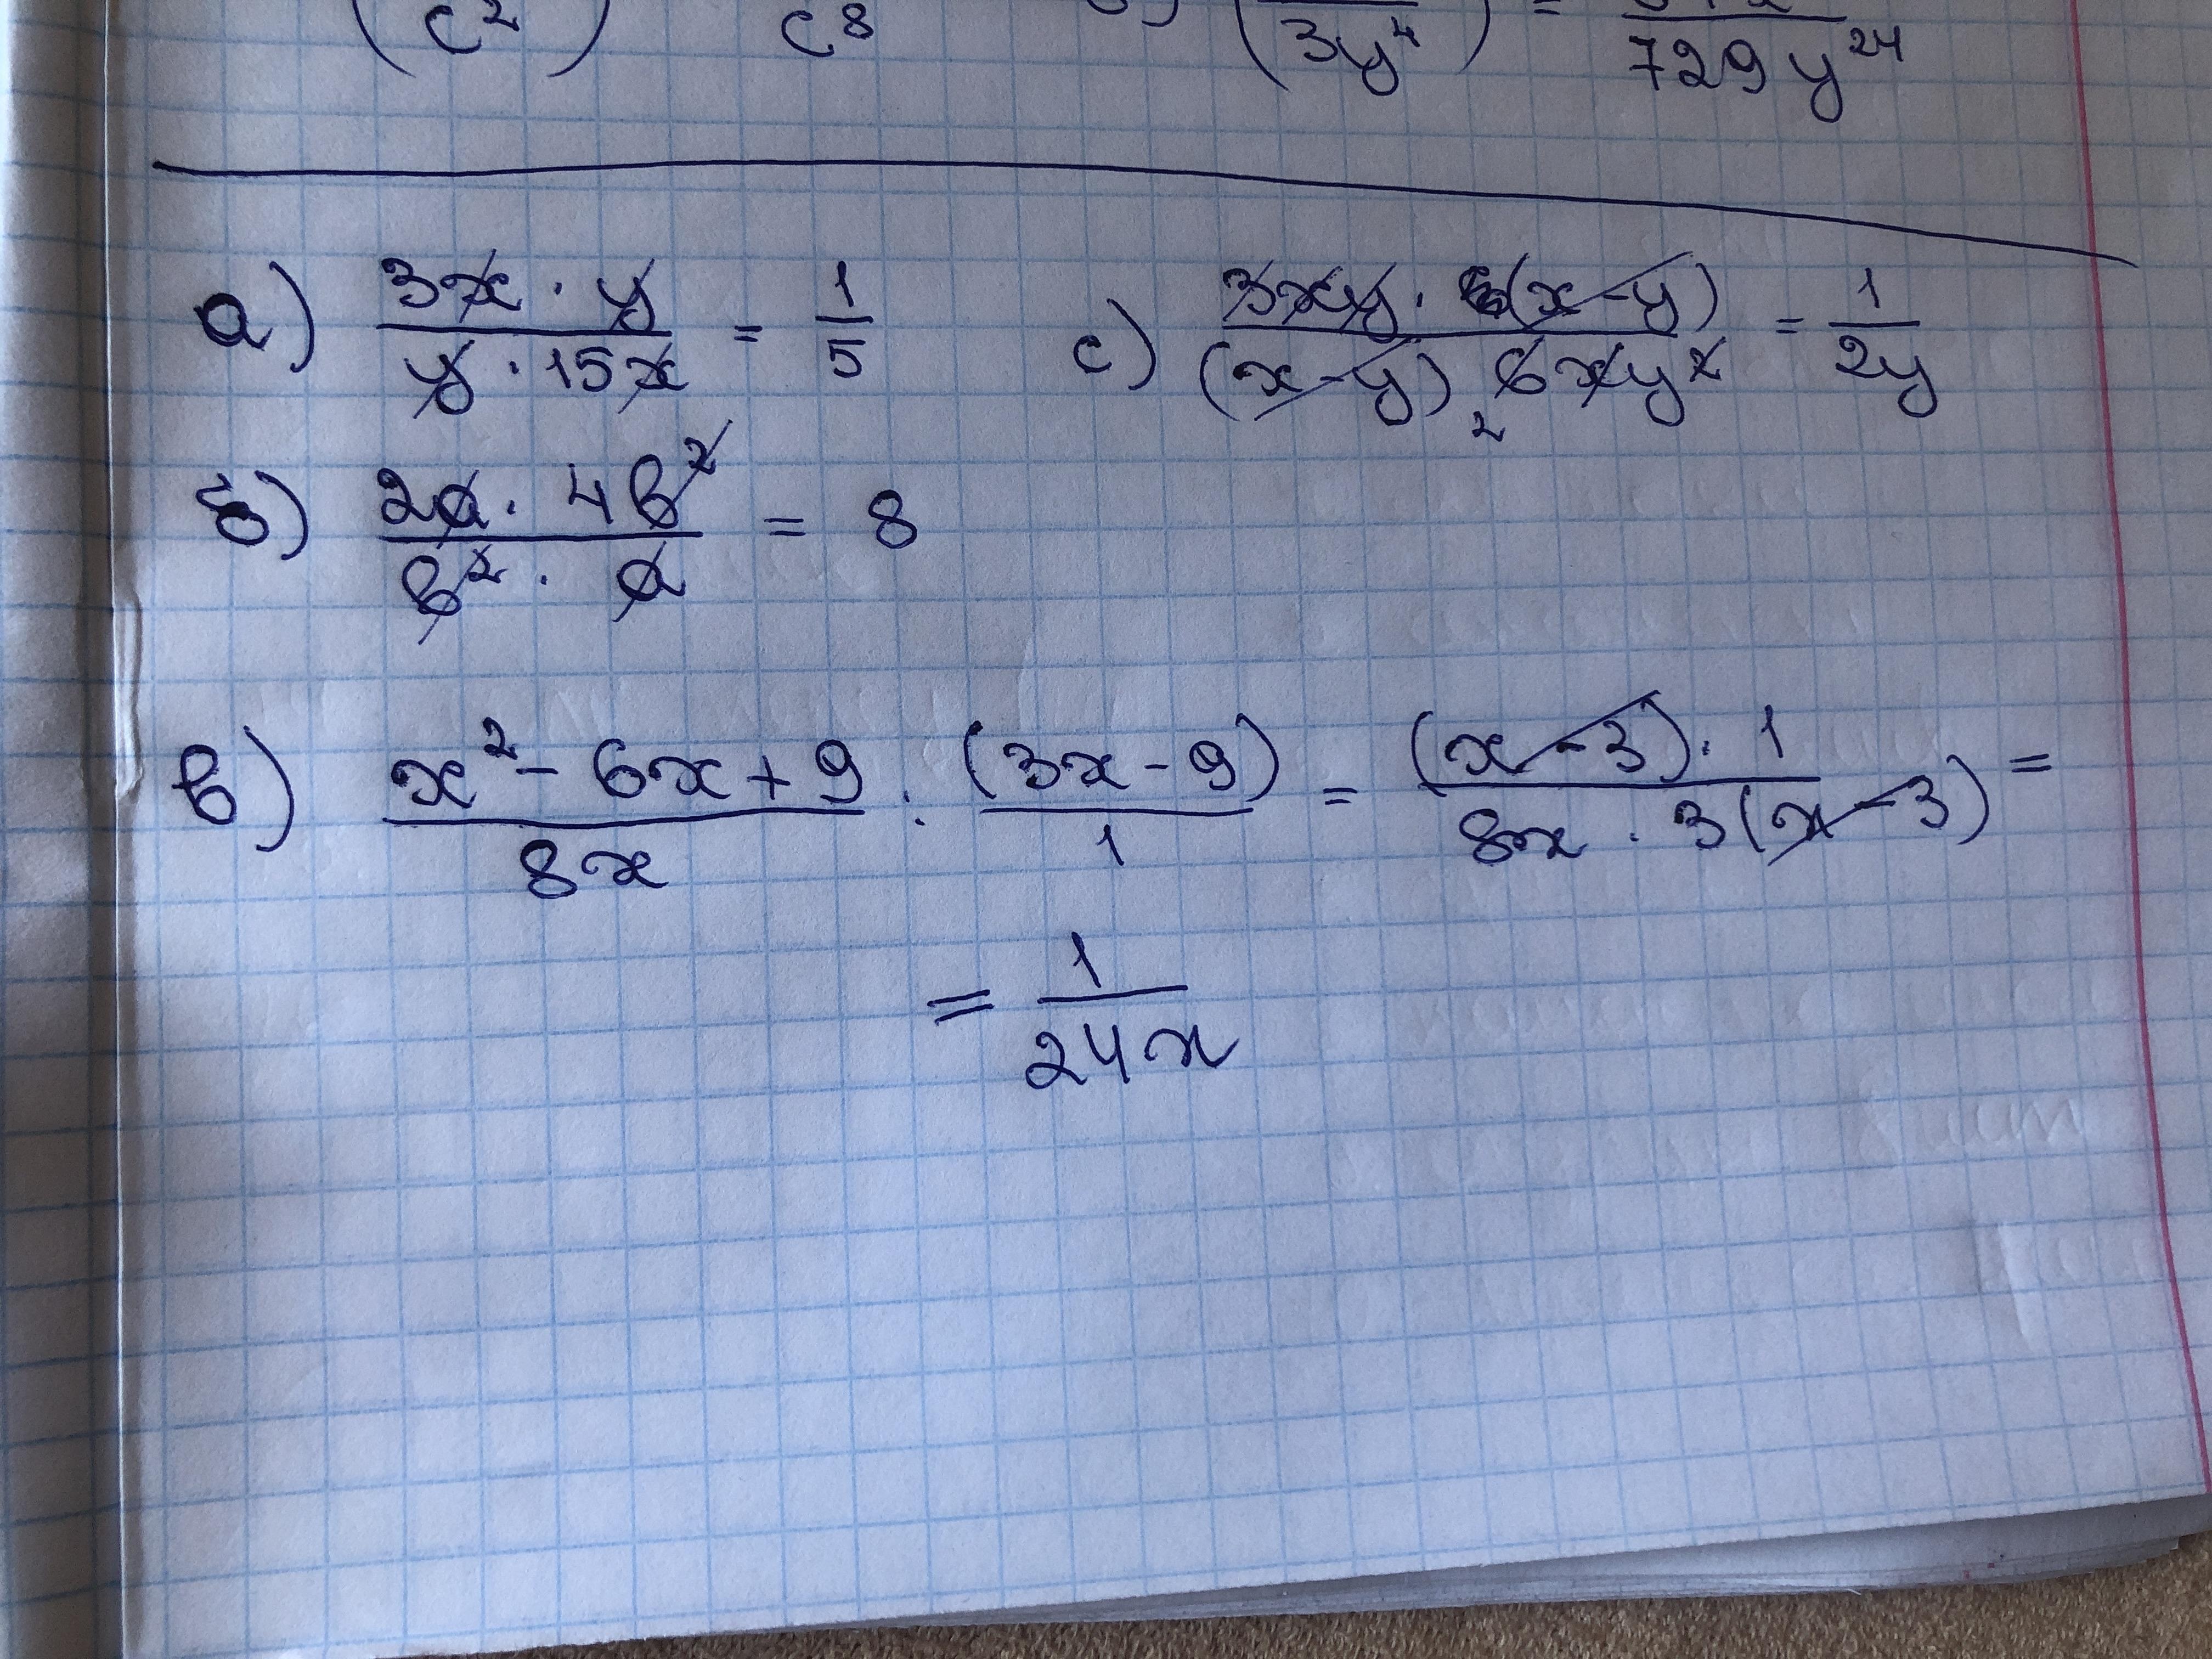 (c²) c⁸ (3y⁴) = 729y²⁴
а) 3x · y / y · 15x = 1/5 c) 3xy · (x-y) / (x-y) 6xy² = 1/2y
2
б) 2a · 4b² / b² · a = 8
в) x² - 6x + 9 / 8x : (3x - 9) / 1 = (x - 3) · 1 / 8x · 3(x - 3) =
= 1 / 24x